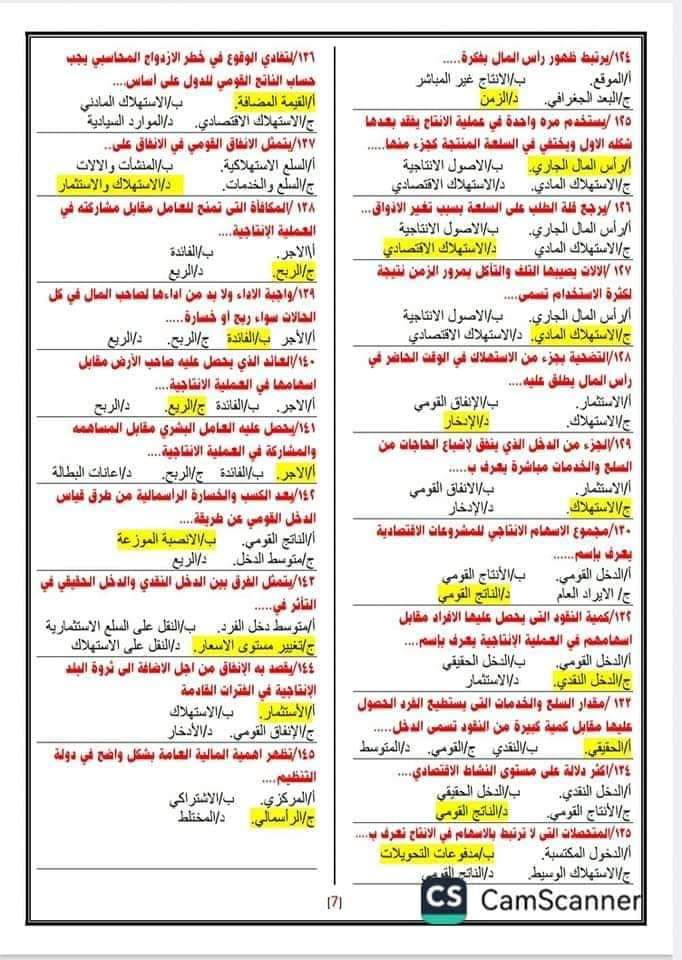 ١٢٤/يرتبط ظهور رأس المال بفكرة.....
أ/الموقع. ب/الانتاج غير المباشر
ج/البعد الجغرافي. د/الزمن
١٢٥ /يستخدم مره واحدة في عملية الانتاج يفقد بعدها
شكله الاول ويختفي في السلعة المنتجة كجزء منها.....
أ/رأس المال الجاري. ب/الاصول الانتاجية
ج/الاستهلاك المادي. د/الاستهلاك الاقتصادي
١٢٦ /يرجع قلة الطلب على السلعة بسبب تغير الاذواق...
أ/رأس المال الجاري. ب/الاصول الانتاجية
ج/الاستهلاك المادي د/الاستهلاك الاقتصادي
١٢٧ /الالات يصيبها التلف والتأكل بمرور الزمن نتيجة
لكثرة الاستخدام تسمى....
أ/رأس المال الجاري. ب/الاصول الانتاجية
ج/الاستهلاك المادي. د/الاستهلاك الاقتصادي
١٢٨/التضحية بجزء من الاستهلاك في الوقت الحاضر في
رأس المال يطلق عليه....
أ/الاستثمار. ب/الإنفاق القومي
ج/الاستهلاك. د/الإدخار
١٢٩/الجزء من الدخل الذي ينفق لإشباع الحاجات من
السلع والخدمات مباشرة يعرف ب.....
أ/الاستثمار. ب/الانفاق القومي
ج/الاستهلاك. د/الإدخار
١٣٠/مجموع الاسهام الانتاجي للمشروعات الاقتصادية
يعرف بإسم......
أ/الدخل القومي. ب/الأنتاج القومي
ج/ الايراد العام د/الناتج القومي
١٣٢/كمية النقود التى يحصل عليها الافراد مقابل
اسهامهم في العملية الإنتاجية يعرف بإسم....
أ/الدخل القومي. ب/الدخل الحقيقي
ج/الدخل النقدي. د/الاستثمار
١٣٣/ مقدار السلع والخدمات التى يستطيع الفرد الحصول
عليها مقابل كمية كبيرة من النقود تسمى الدخل.....
أ/الحقيقي. ب/النقدي ج/القومي. د/المتوسط
١٣٤/اكثر دلالة على مستوى النشاط الاقتصادي....
أ/الدخل النقدي. ب/الدخل الحقيقي
ج/الأنتاج القومي. د/الناتج القومي
١٣٥/المتحصلات التى لا ترتبط بالاسهام في الانتاج تعرف ب...
أ/الدخول المكتسبة. ب/مدفوعات التحويلات
ج/الاستهلاك الوسيط. د/الناتج القومي
١٣٦/لتفادي الوقوع في خطر الازدواج المحاسبي يجب
حساب الناتج القومي للدول على أساس....
أ/القيمة المضافة. ب/الاستهلاك المادي
ج/الاستهلاك الاقتصادي. د/الموارد السيادية
١٣٧/يتمثل الانفاق القومي في الانفاق على..
أ/السلع الاستهلاكية. ب/المنشأت والالات
ج/السلع والخدمات. د/الاستهلاك والاستثمار
١٣٨ /المكافأة التى تمنح للعامل مقابل مشاركته في
العملية الإنتاجية....
أ/الاجر. ب/الفائدة
ج/الربح. د/الريع
١٣٩/واجبة الاداء ولا بد من اداءها لصاحب المال في كل
الحالات سواء ربح او خسارة.....
أ/الأجر ب/الفائدة ج/الربح. د/الريع
١٤٠/العائد الذي يحصل عليه صاحب الأرض مقابل
اسهامها في العملية الانتاجية....
أ/الاجر. ب/الفائدة ج/الريع. د/الربح
١٤١/يحصل عليه العامل البشري مقابل المساهمه
والمشاركة في العملية الانتاجية....
أ/الاجر. ب/الفائدة ج/الربح. د/اعانات البطالة
١٤٢/يعد الكسب والخسارة الرأسمالية من طرق قياس
الدخل القومي عن طريقة....
أ/الناتج القومي. ب/الانصبة الموزعة
ج/متوسط الدخل. د/الريع
١٤٣/يتمثل الفرق بين الدخل النقدي والدخل الحقيقي في
التأثر في.....
أ/متوسط دخل الفرد. ب/النقل على السلع الاستثمارية
ج/تغيير مستوى الاسعار. د/النقل على الاستهلاك
١٤٤/يقصد به الإنفاق من اجل الاضافة الى ثروة البلد
الإنتاجية في الفترات القادمة
أ/الأستثمار. ب/الاستهلاك
ج/الإنفاق القومي. د/الأدخار
١٤٥/تظهر اهمية المالية العامة بشكل واضح في دولة
التنظيم....
أ/المركزي. ب/الاشتراكي
ج/الرأسمالي. د/المختلط
[7]
CS CamScanner